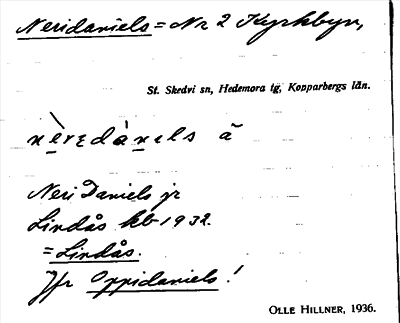 Neridaniels = Nr 2 Kyrkbyn,
St. Skedvi sn, Hedemora tg, Kopparbergs län.
nèredàniels ā
Neri Daniels jr
Lindås kb 1932.
= Lindås.
Jfr Oppidaniels!
OLLE HILLNER, 1936.